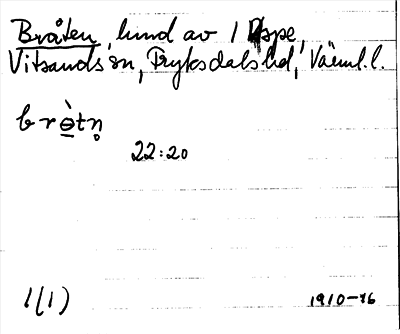 Bråten, lund av 1 Aspe,
Vitsands sn, Fryksdals hd, Värml. l.
brө̀tn̥
22:20
1(1) 1910-16